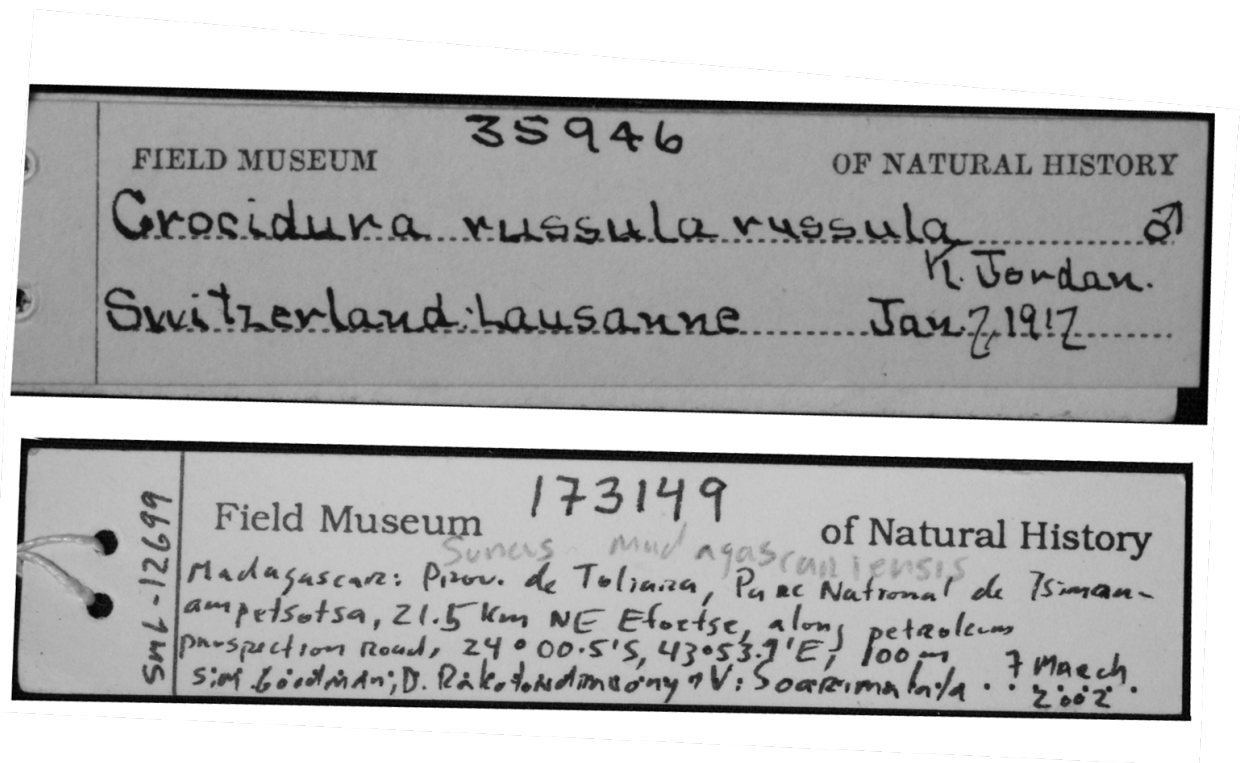 35946
FIELD MUSEUM OF NATURAL HISTORY
Crocidura russula russula ♂
K. Jordan.
Switzerland: Lausanne Jan. 7, 1917
SML-12699
173149
Field Museum of Natural History
Suncus madagascariensis
Madagascar: Prov. de Toliara, Parc National de Tsiman-
ampetsotsa, 21.5 km NE Efoetse, along petroleum
prospection road, 24°00.5'S, 43°53.1'E, 100 m 7 March
S.M. Goodman, D. Rakotondravony + V. Soarimalala 2002